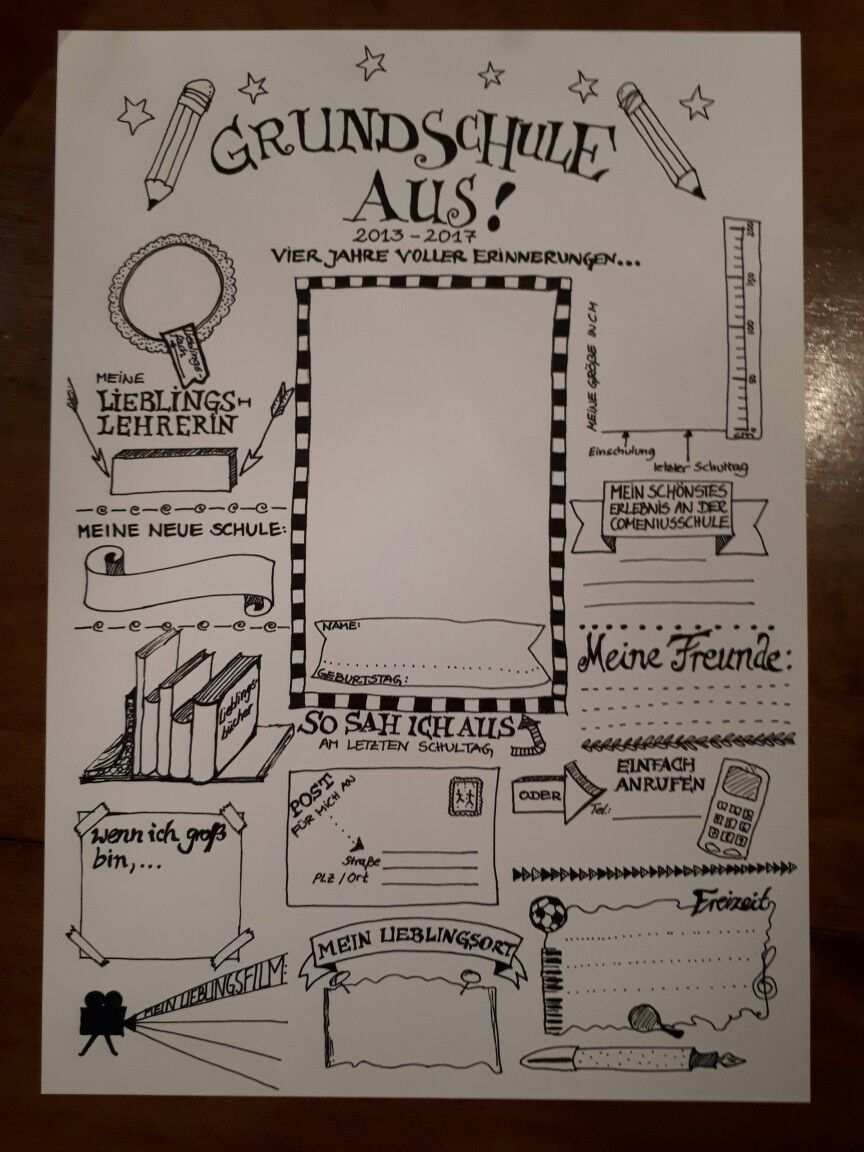 GRUNDSCHULE
AUS!
2013 - 2017
VIER JAHRE VOLLER ERINNERUNGEN...
MEINE
LIEBLINGS-
LEHRERIN
MEINE NEUE SCHULE:
Lieblings-
bücher
wenn ich groß
bin,...
MEIN LIEBLINGSFILM:
NAME:
GEBURTSTAG:
SO SAH ICH AUS
AM LETZTEN SCHULTAG
POST
FÜR MICH AN
Straße
PLZ / Ort
MEIN LIEBLINGSORT
MEINE GRÖßE IN CM
200
150
100
50
0
Einschulung
letzter Schultag
MEIN SCHÖNSTES
ERLEBNIS AN DER
COMENIUSSCHULE
Meine Freunde:
ODER
EINFACH
ANRUFEN
Tel.:
Freizeit